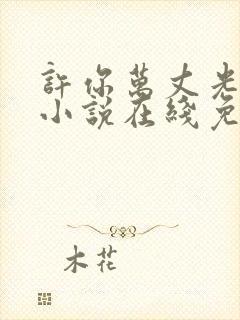 許你萬丈光
小說在綫免
木花